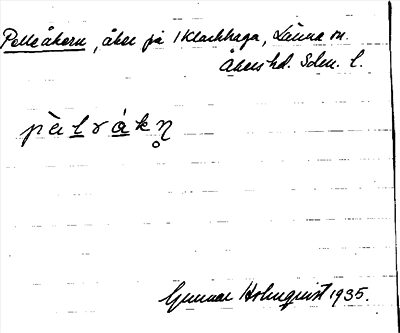 Pelleåkern, åker på 1 Klackhaga, Länna sn.
Åkers hd. Sdm. l.
Gunnar Holmquist 1935.